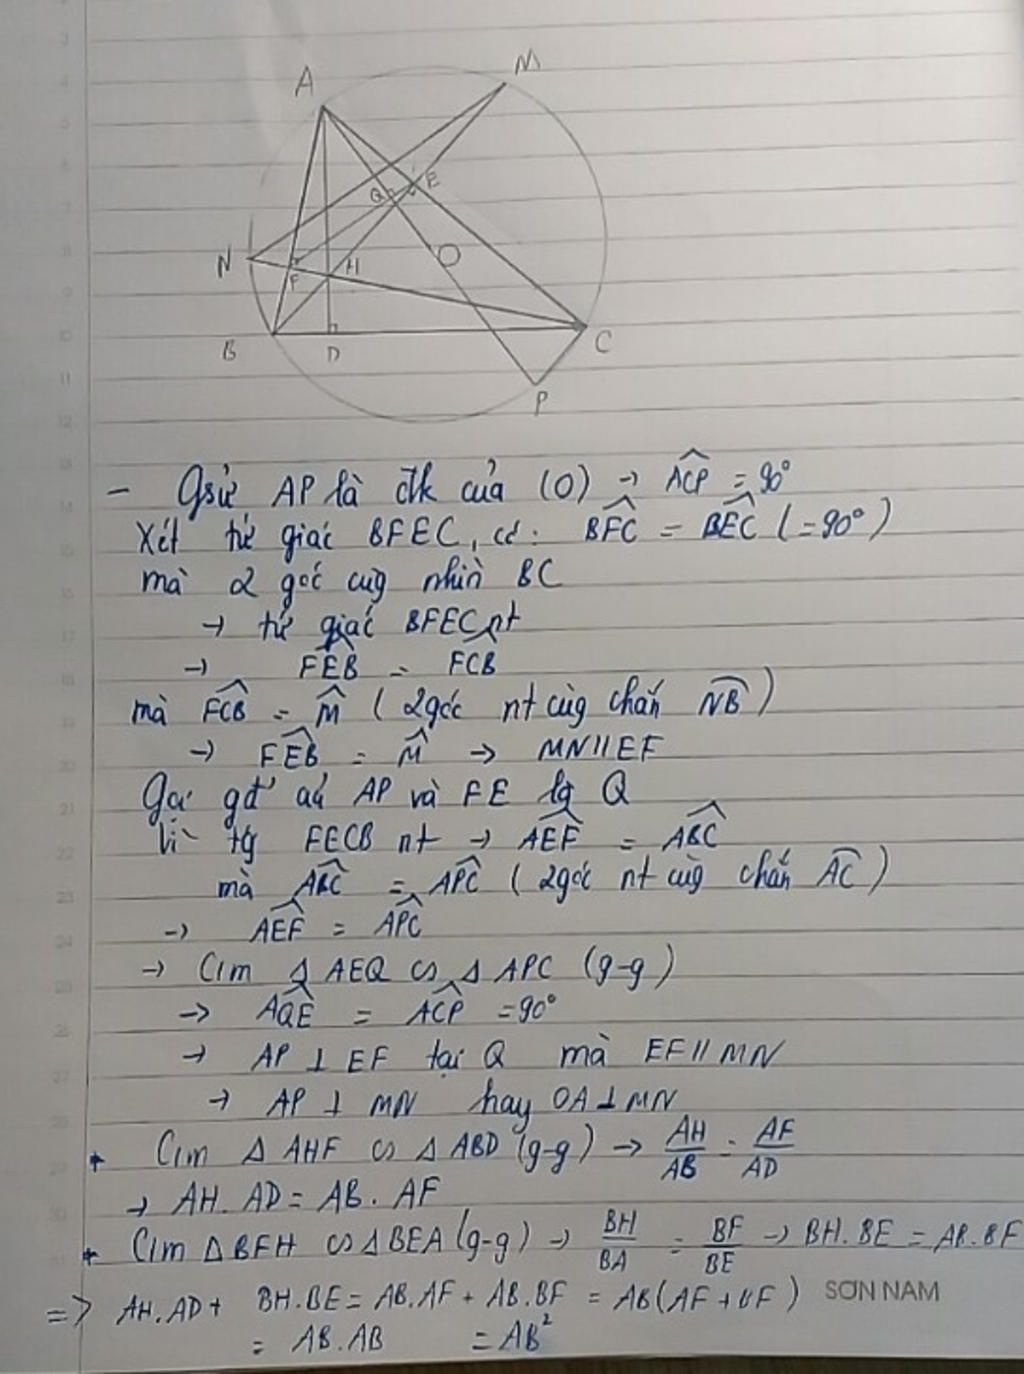 A
M
Q
E
N
F
H
O
B
D
C
P
- Gsử AP là đk của (O) → ACP = 90°
Xét tứ giác BFEC, có: BFC = BEC (=90°)
mà 2 góc cùg nhìn BC
→ tứ giác BFEC nt
→ FEB = FCB
mà FCB = M (2góc nt cùg chắn NB)
→ FEB = M → MN // EF
Gọi gđ' củ AP và FE là Q
Vì tg FECB nt → AEF = ABC
mà ABC = APC (2góc nt cùg chắn AC)
→ AEF = APC
→ C/m Δ AEQ ∽ Δ APC (g-g)
→ AQE = ACP = 90°
→ AP ⊥ EF tại Q mà EF // MN
→ AP ⊥ MN hay OA ⊥ MN
+ C/m Δ AHF ∽ Δ ABD (g-g) → AH/AB = AF/AD
→ AH. AD = AB. AF
+ C/m Δ BFH ∽ Δ BEA (g-g) → BH/BA = BF/BE → BH. BE = AB. BF
=> AH. AD + BH. BE = AB. AF + AB. BF = AB (AF + BF)
= AB. AB = AB²
SƠN NAM